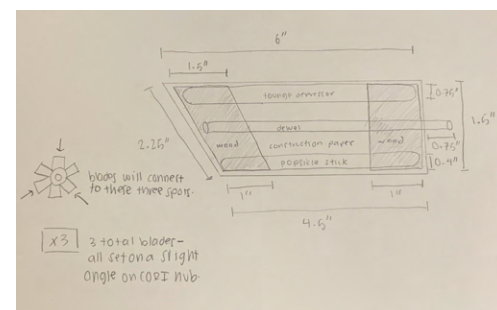 6"
1.5"
tounge depressor
0.75"
2.25"
dewel
1.5"
wood
construction paper
wood
0.75"
popsicle stick
0.4"
1"
1"
4.5"
blades will connect
to these three spots.
x3
3 total blades-
all set on a slight
angle on CODI hub.